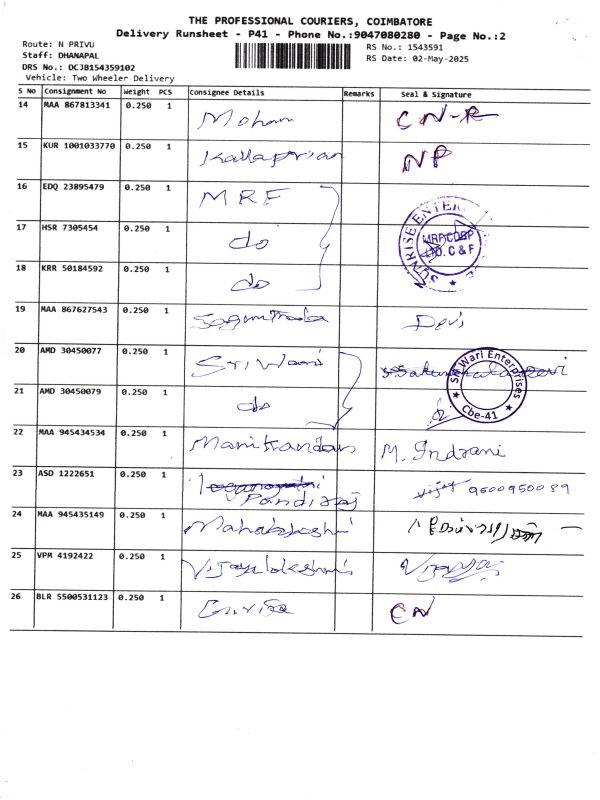 THE PROFESSIONAL COURIERS, COIMBATORE
Delivery Runsheet - P41 - Phone No.:9047080280 - Page No.:2
Route: N PRIVU
RS No.: 1543591
Staff: DHANAPAL
RS Date: 02-May-2025
DRS No.: DCJB154359102
Vehicle: Two Wheeler Delivery
S No Consignment No Weight PCS Consignee Details Remarks Seal & Signature
14 MAA 867813341 0.250 1 Mohan CN-R
15 KUR 1001033770 0.250 1 NP
16 EDQ 23895479 0.250 1 MRF
17 HSR 7305454 0.250 1 do
SUNRISE ENTER
MRF CORP
C & F
18 KRR 50184592 0.250 1 do
19 MAA 867627543 0.250 1 Devi
20 AMD 30450077 0.250 1 Sri Wari
Sri Wari Enterprises
Cbe-41
21 AMD 30450079 0.250 1 do
22 MAA 945434534 0.250 1 Manikandan M. Indrani
23 ASD 1222651 0.250 1 Pandiraj Vijay
24 MAA 945435149 0.250 1
25 VPM 4192422 0.250 1
26 BLR 5500531123 0.250 1 CN